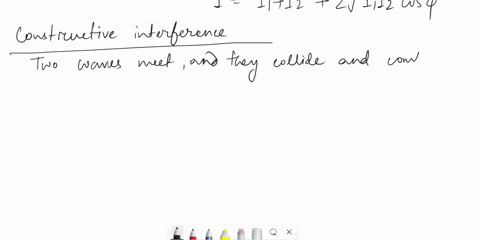 I = I1+I2 + 2√I1I2 cos φ
Constructive interference
Two waves meet, and they collide and com